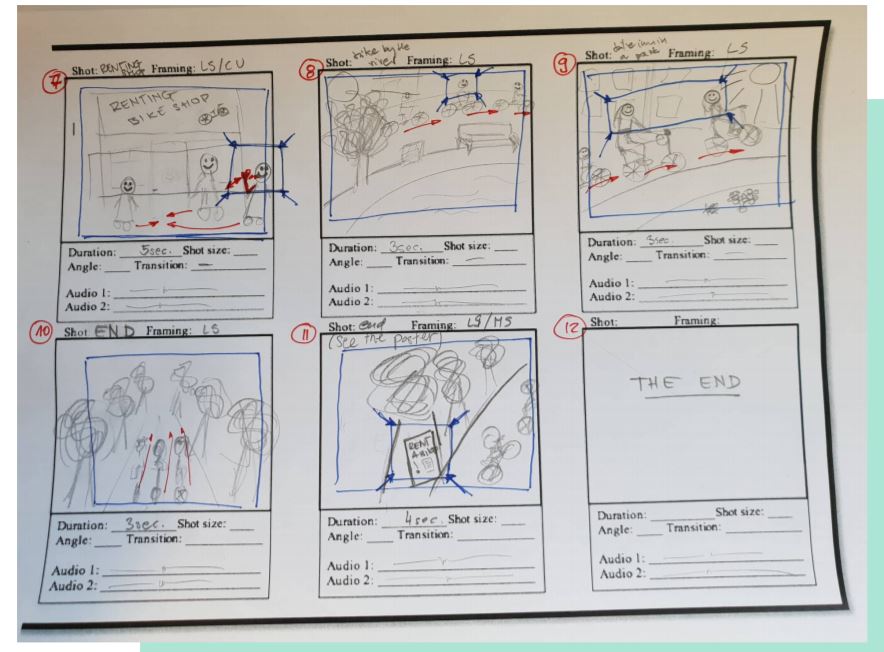 7
Shot: RENTING Framing: LS/CU
RENTING
BIKE SHOP
Duration: 5sec. Shot size:
Angle: Transition: —
Audio 1:
Audio 2:
8
Shot: bike by the river Framing: LS
Duration: 3sec. Shot size:
Angle: Transition: —
Audio 1:
Audio 2:
9
Shot: in a park Framing: LS
Duration: 3sec. Shot size:
Angle: Transition:
Audio 1:
Audio 2:
10
Shot END Framing: LS
Duration: 3sec. Shot size:
Angle: Transition:
Audio 1:
Audio 2:
11
Shot: end Framing: LS/MS
(See the poster)
RENT
A BIKE
!
Duration: 4sec. Shot size:
Angle: Transition:
Audio 1:
Audio 2:
12
Shot: Framing:
THE END
Duration: Shot size:
Angle: Transition:
Audio 1:
Audio 2: